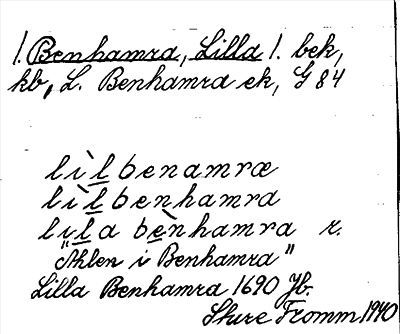 1. Benhamra, Lilla 1. bek,
kb, L. Benhamra ek, G 84
lìlbenamræ
lìlbenhamra
lila bènhamra r.
"Ahlen i Benhamra"
Lilla Benhamra 1690 Jb.
Sture Fromm 1940